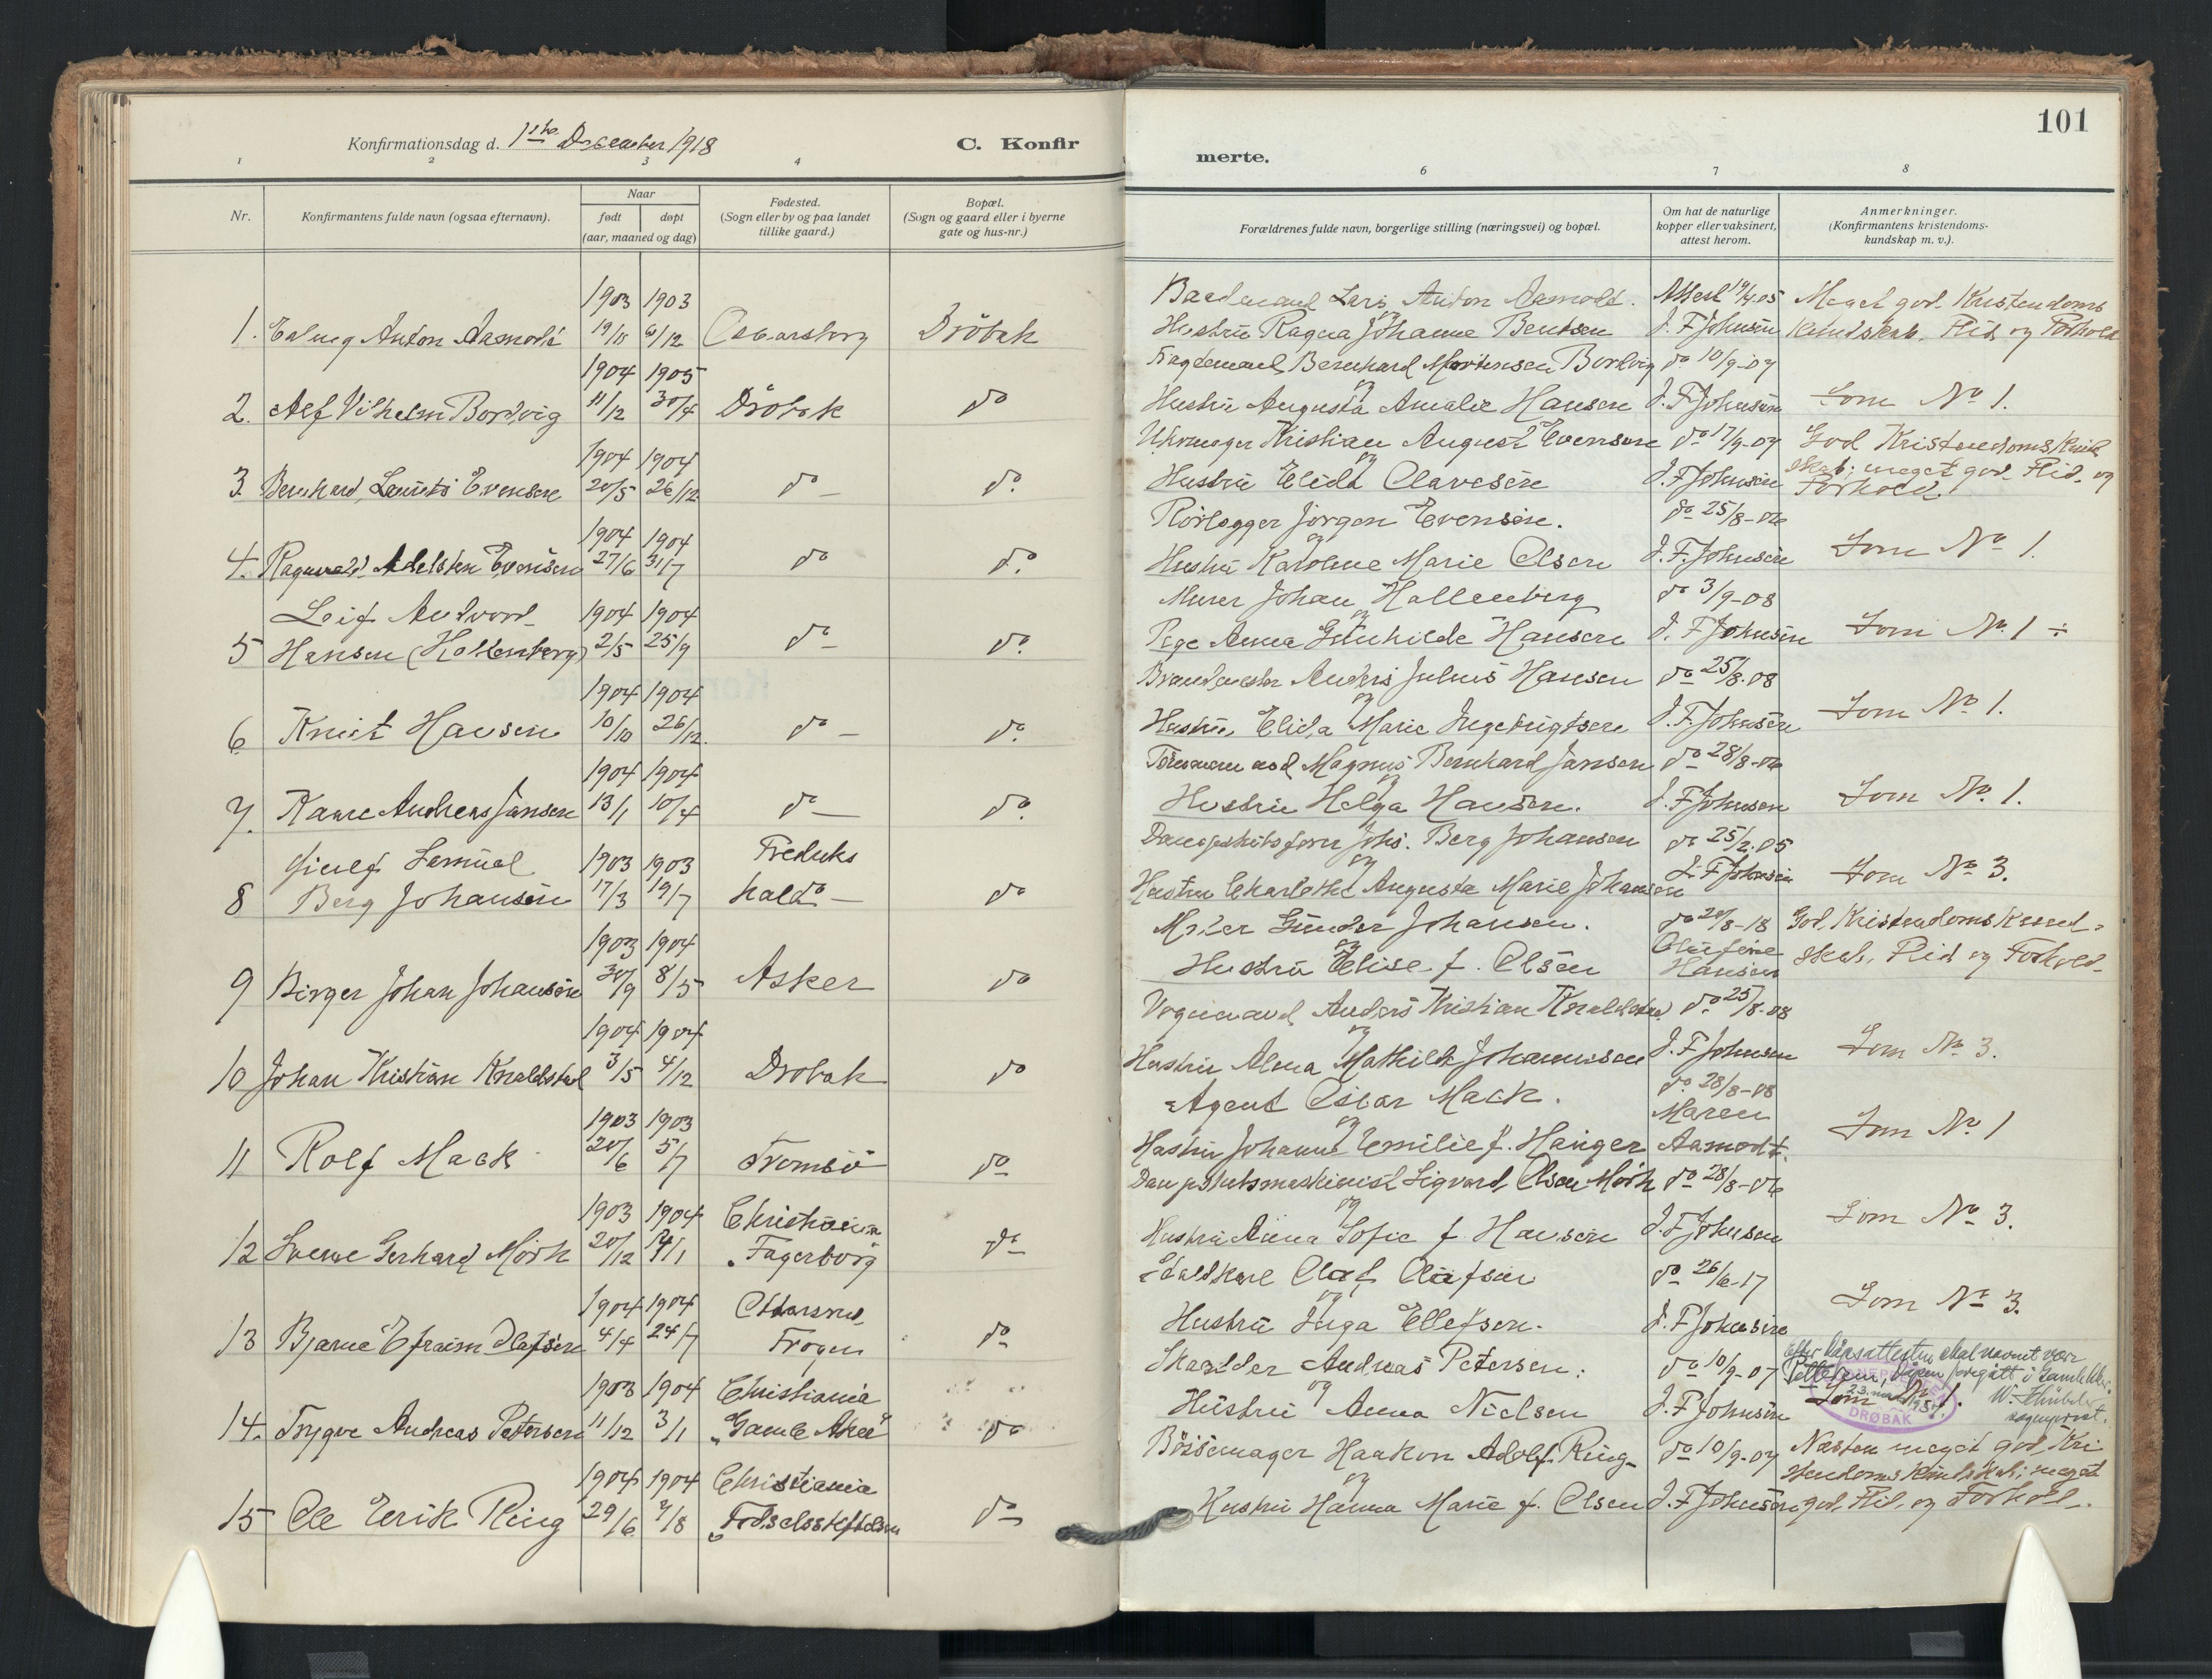 101
Konfirmationsdag d. 1ste December 1918
C. Konfir
merte.
1 2 3 4
6 7 8
Nr.
Konfirmantens fulde navn (ogsaa efternavn).
Naar
født
døpt
(aar, maaned og dag)
Fødested.
(Sogn eller by og paa landet
tillike gaard.)
Bopæl.
(Sogn og gaard eller i byerne
gate og hus-nr.)
Forældrenes fulde navn, borgerlige stilling (næringsvei) og bopæl.
Om hat de naturlige
kopper eller vaksinert,
attest herom.
Anmerkninger.
(Konfirmantens kristendoms-
kundskap m. v.).
1903 1903
1. Anton Aamodt 6/12 Oscarsborg Drøbak
Lars Anton Aamodt. Attest 19/4.05 Meget god Kristendoms
og
Hustru Ragna Johanne Bentsen J. F Johnsen Kundskab, Flid og Forhold
1904 1905
2. Alf Vilhelm Bordvig 11/12 30/4 Drøbak do
Bernhard Mortensen Bordvig do 10/9-07
og
Hustru Augusta Amalie Hansen J. F Johnsen Som No 1.
1904 1904
3. Bernhard Laurits Evensen 20/5 26/12 do do
Uhrmager Kristian August Evensen do 17/9-07 God Kristendomskund
og
Hustru Elida Olavesen J. F Johnsen skab; meget god Flid og
Forhold.
1904 1904
4. Ragnvald Adelsten Evensen 27/6 31/7 do do
Rørlegger Jørgen Evensen. do 25/8-06
og
Hustru Karoline Marie Olsen J. F. Johnsen Som No 1.
Leif 1904 1904
5 Hansen (Hallenberg) 2/5 25/9 do do
Murer Johan Hallenberg do 3/9-08
og
Pige Anna Gunhilde Hansen J. F Johnsen Som No. 1 ÷
1904 1904
6. Knut Hansen 10/10 26/12. do do
Brandmester Anders Julius Hansen do 25/8.08
og
Hustru Elida Marie Ingebrigtsen J. F. Johnsen Som No 1.
1904 1904
7. Kaare Andreas Jansen 13/1 10/4 do do
Magnus Bernhard Jansen do 28/8-06
og
Hustru Helga Hansen. J. F Johnsen Som No. 1.
Samuel 1903 1903 Fredriks
8 Berg Johansen 17/3 19/7 hald do
Johs. Berg Johansen do 25/2.05
og
Hustru Charlotte Augusta Marie Johansen J. F Johnsen Som No 3.
1903 1904
9 Birger Johan Johansen 30/9 8/5 Asker do
Maler Gunder Johansen. do God Kristendomskund-
og
Hustru Elise f. Olsen Olufine Hansen skab, Flid og Forhold
1904 1904
10 Johan Kristian Knaldstad 3/5 4/12 Drøbak do
Vognmand Anders Kristian Knaldstad do 25/8-08
og
Hustru Alma Mathilde Johannesen J. F Johnsen Som No 3.
1903 1903
11 Rolf Mack 20/6 5/7 Tromsø do
Agent Oscar Mack. do 28/8-08
og
Hustru Johanne Emilie f. Hauger Maren Aamodt. Som No 1
1903 1904 Christiania
12 Sverre Gerhard Mörk 20/12 Fagerborg do
Dampskibsmaskinist Sigvard Olsen Mörk do 28/8-06
og
Hustru Anna Sofie f. Hansen J. F Johnsen Som No 3.
1904 1904
13 Bjarne Efraim Olafsen 4/4 24/7 Frogn do
Olaf Olafsen do 26/6-17
og
Hustru Inga Ellefsen. J. F Johnsen Som No 3.
1903 1904 Christiania
14. Trygve Andreas Petersen 11/12 3/1 "Gamle Aker" do
Skrædder Andreas Petersen. do 10/9-07
Efter dåpsattesten skal navnet være
Pettersen, dåpen foregått i Gamle Aker.
og
Hustru Anna Nielsen J. F Johnsen Som No 1.
DRØBAK
sogneprest.
1904 1904 Christiania
15 Ole Erik Ring 29/6 7/8 Fødselsstiftelsen do
Bøssemager Haakon Adolf Ring do 10/9-07 Næsten meget god Kri
og
Hustru Hanna Marie f. Olsen J. F Johnsen stendomskundskab; meget
god Flid og Forhold.